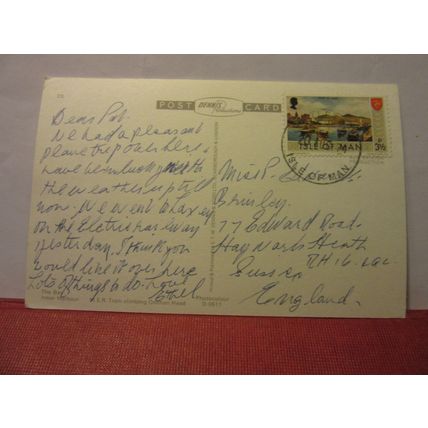 POST DENNIS Productions CARD
Dear Pat.
We had a pleasant
plane trip over here &
have been lucky with
the weather up till
now. We went to
on the Eletric railway
yesterday. I think you
would like it over here
Lots of things to do. Love
Ethel
Miss P.
77 Edward Road
Haywards Heath
Sussex RH16
England.
ISLE OF MAN
3½
ISLE OF MAN
The Bay
M.E.R. Tram climbing Onchan Head
Photocolour